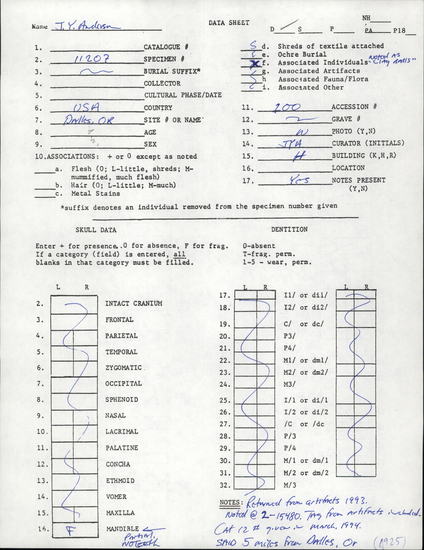 Name J.Y. Anderson
DATA SHEET
D S P
NH
PA P18
1. CATALOGUE #
2. 11207 SPECIMEN #
3. BURIAL SUFFIX*
4. COLLECTOR
5. CULTURAL PHASE/DATE
6. USA COUNTRY
7. Dalles, OR SITE # OR NAME
8. ? AGE
9. SEX
10. ASSOCIATIONS: + or 0 except as noted
a. Flesh (0; L-little, shreds; M-mummified, much flesh)
b. Hair (0; L-little; M-much)
c. Metal Stains
d. Shreds of textile attached
e. Ochre Burial
f. Associated Individuals
Noted as "City Dalles"
g. Associated Artifacts
h. Associated Fauna/Flora
i. Associated Other
11. 200 ACCESSION #
12. GRAVE #
13. N PHOTO (Y,N)
14. JYA CURATOR (INITIALS)
15. H BUILDING (K,H,R)
16. LOCATION
17. Yes NOTES PRESENT (Y,N)
*suffix denotes an individual removed from the specimen number given
SKULL DATA
Enter + for presence, 0 for absence, F for frag.
If a category (field) is entered, all
blanks in that category must be filled.
L R
2. INTACT CRANIUM
3. FRONTAL
4. PARIETAL
5. TEMPORAL
6. ZYGOMATIC
7. OCCIPITAL
8. SPHENOID
9. NASAL
10. LACRIMAL
11. PALATINE
12. CONCHA
13. ETHMOID
14. VOMER
15. MAXILLA
14. F MANDIBLE
Partial, no teeth
DENTITION
0-absent
T-frag. perm.
1-5 - wear, perm.
L R L R
17. I1/ or di1/
18. I2/ or di2/
19. C/ or dc/
20. P3/
21. P4/
22. M1/ or dm1/
23. M2/ or dm2/
24. M3/
25. I/1 or di/1
26. I/2 or di/2
27. /C or dc/
28. P/3
29. P/4
30. M/1 or dm/1
31. M/2 or dm/2
32. M/3
NOTES: Returned from artifacts 1993.
Noted @ 2-15480. Tag from artifacts included.
CAT 12 # given in March 1994.
SAID 5 miles from Dalles, Or (1925)